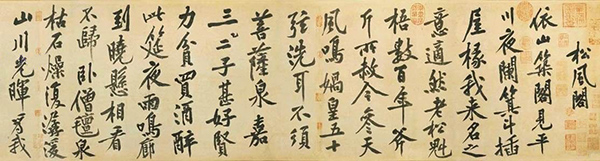 松風閣
依山築閣見平
川夜闌箕斗插
屋椽我來名之
意適然老松魁
梧數百年斧
斤所赦今參天
風鳴媧皇五十
弦洗耳不須
菩薩泉嘉
三二子甚好賢
力貧買酒醉
此筵夜雨鳴廊
到曉懸相看
不歸臥僧氈泉
枯石燥復潺湲
山川光暉為我